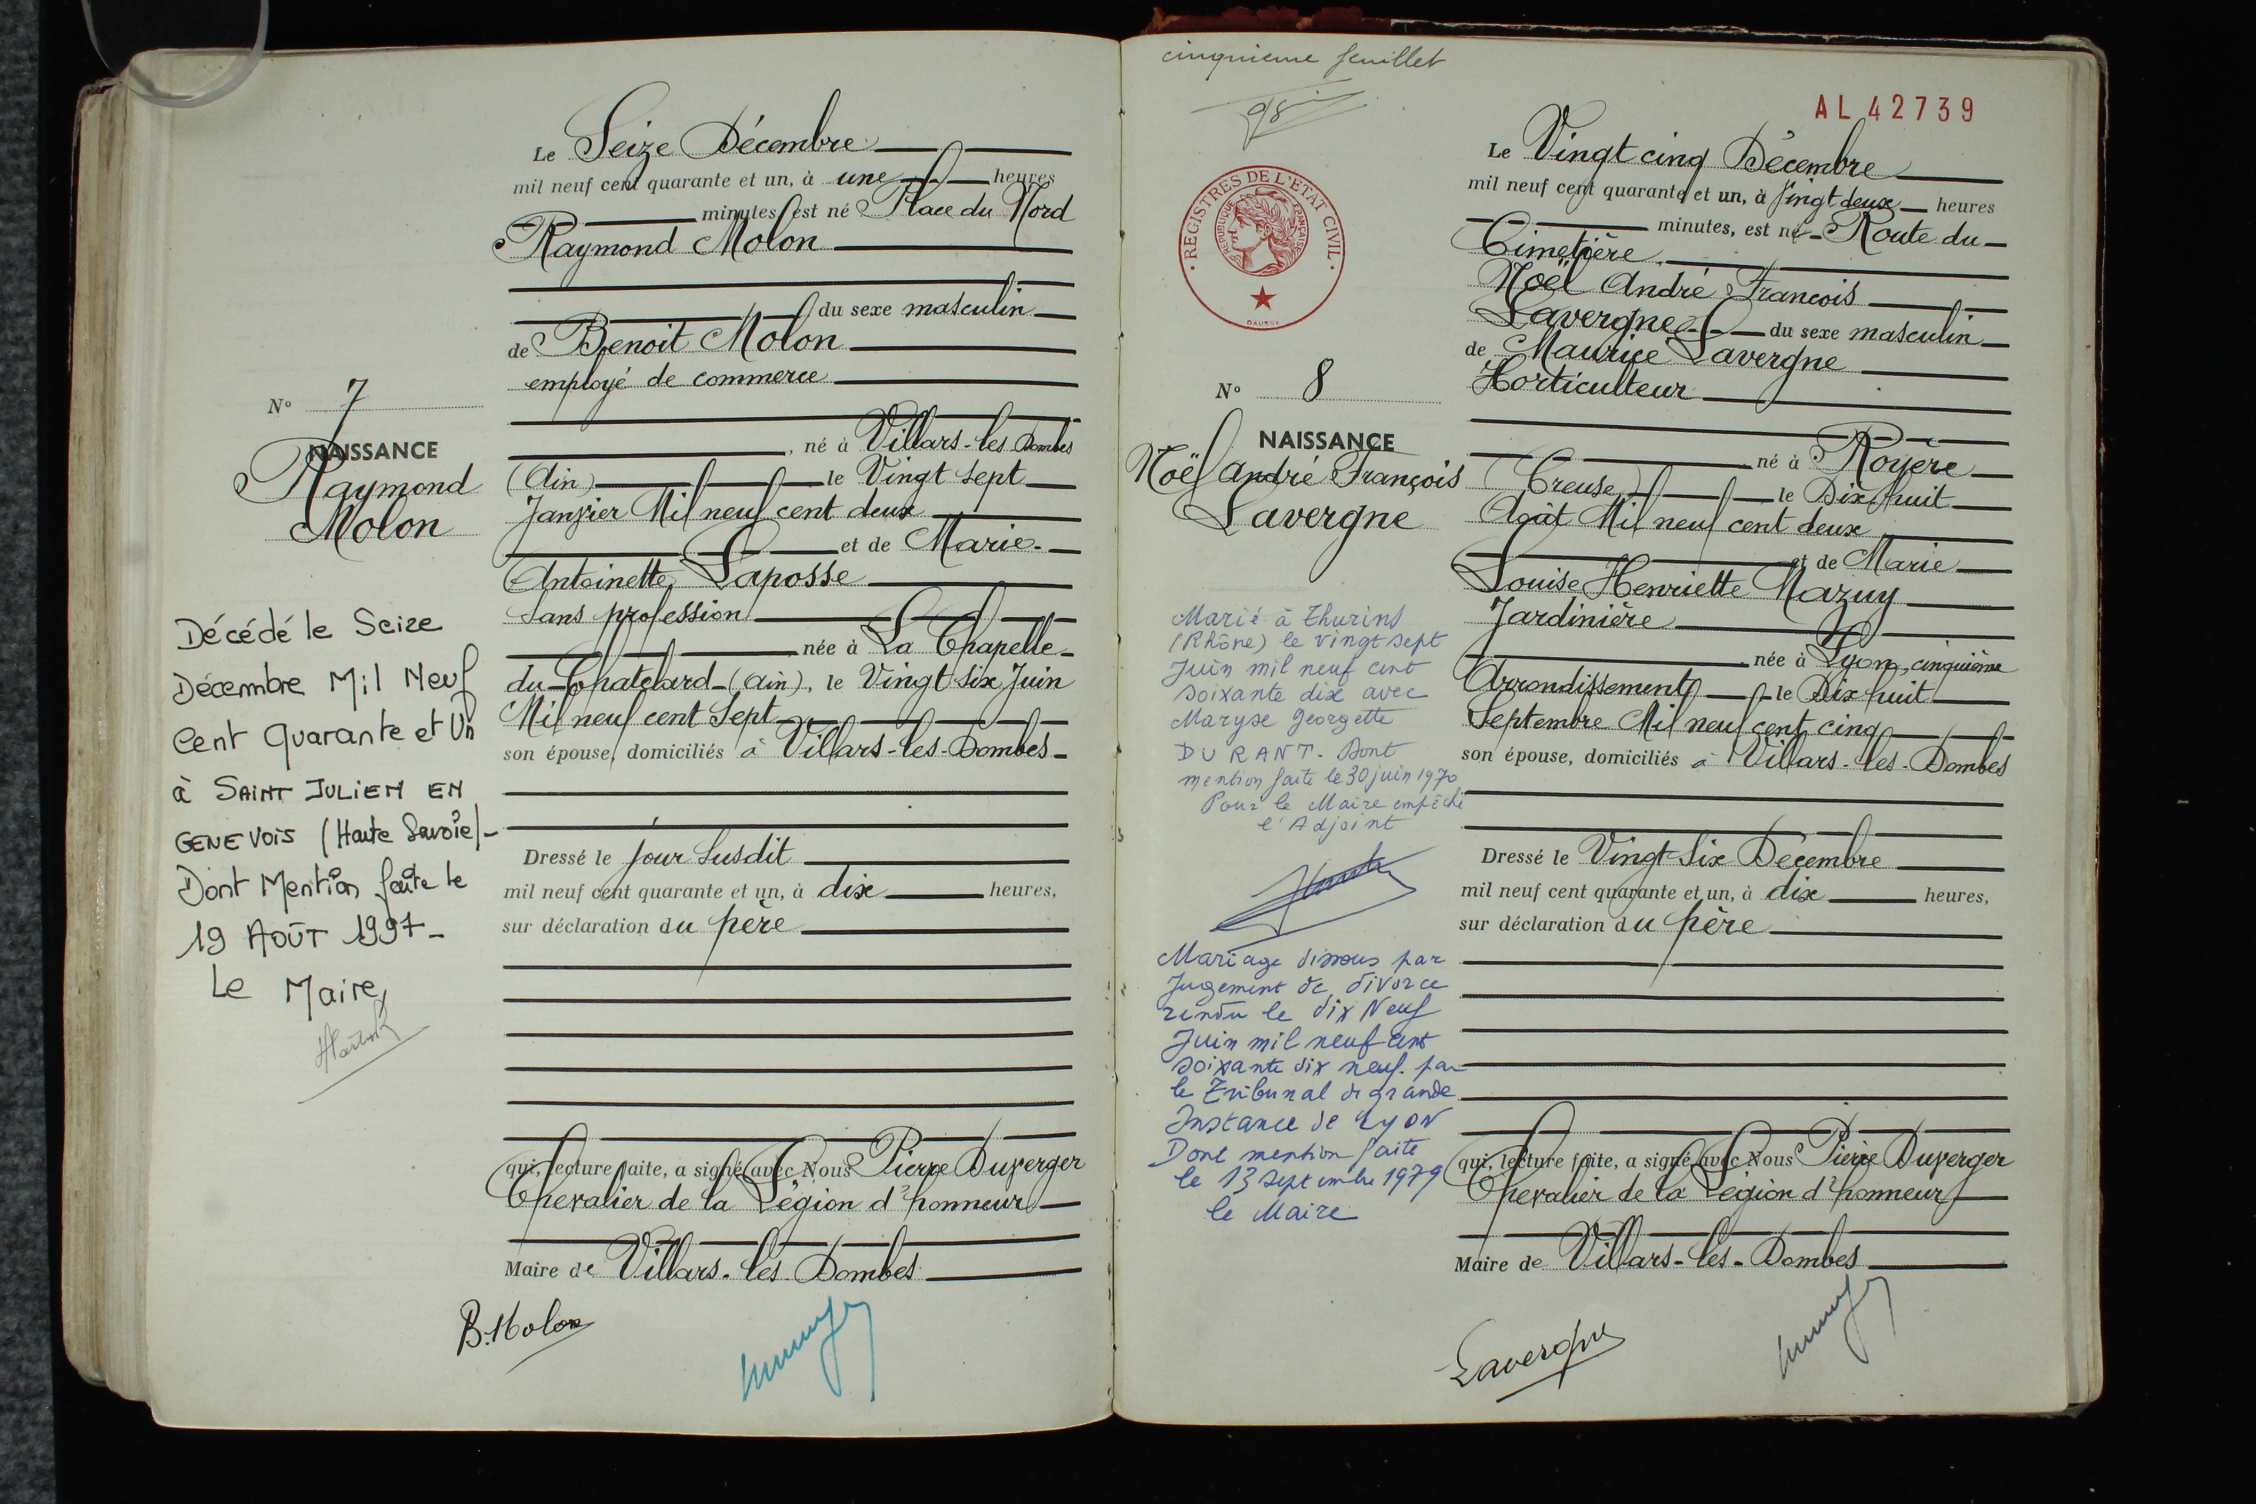 Le Seize Décembre
mil neuf cent quarante et un, à une heures
minutes est né Place du Nord
Raymond Molon
du sexe masculin
de Benoit Molon
employé de commerce
, né à Villars-les Dombes
(Ain) le Vingt sept
Janvier Mil neuf cent deux
et de Marie-
Antoinette Laposse
sans profession
née à La Chapelle-
du-Chatelard-(ain), le Vingt six Juin
Mil neuf cent Sept
son épouse, domiciliés à Villars-les-Dombes-
Dressé le jour susdit
mil neuf cent quarante et un, à dix heures,
sur déclaration du père
qui, lecture faite, a signé avec Nous Pierre Duverger
Chevalier de la Légion d'honneur
Maire de Villars-les Dombes
B. Molon
N° 7
NAISSANCE
Raymond
Molon
Décédé le Seize
Décembre Mil Neuf
Cent Quarante et Un
à SAINT JULIEN EN
GENEVOIS (Haute Savoie)-
Dont Mention faite le
19 AOÛT 1997-
Le Maire,
cinquieme feuillet
98
AL 42739
REGISTRES DE L'ETAT CIVIL
REPUBLIQUE FRANÇAISE
Le Vingt cinq Décembre
mil neuf cent quarante et un, à Vingt deux heures
minutes, est né Route du
Cimetière
Noël André François
Lavergne du sexe masculin
de Maurice Lavergne
Horticulteur
né à Royère
(Creuse) le Dix huit
Août Mil neuf cent deux
et de Marie
Louise Henriette Mazuy
Jardinière
née à Lyon, cinquième
Arrondissement le Dix-huit
Septembre Mil neuf cent cinq
son épouse, domiciliés à Villars-les-Dombes
Dressé le Vingt-Six Décembre
mil neuf cent quarante et un, à dix heures,
sur déclaration du père
qui, lecture faite, a signé avec Nous Pierre Duverger
Chevalier de la Légion d'honneur
Maire de Villars-les-Dombes
Lavergne
N° 8
NAISSANCE
Noël André François
Lavergne
Marié à Thurins
(Rhône) le vingt sept
Juin mil neuf cent
soixante dix avec
Maryse Georgette
DURANT. Dont
mention faite le 30 juin 1970
Pour le Maire empêché
l'Adjoint
Mariage dissous par
Jugement de divorce
rendu le dix Neuf
Juin mil neuf cent
soixante dix neuf. par
le Tribunal de grande
Instance de Lyon
Dont mention faite
le 13 septembre 1979
le Maire